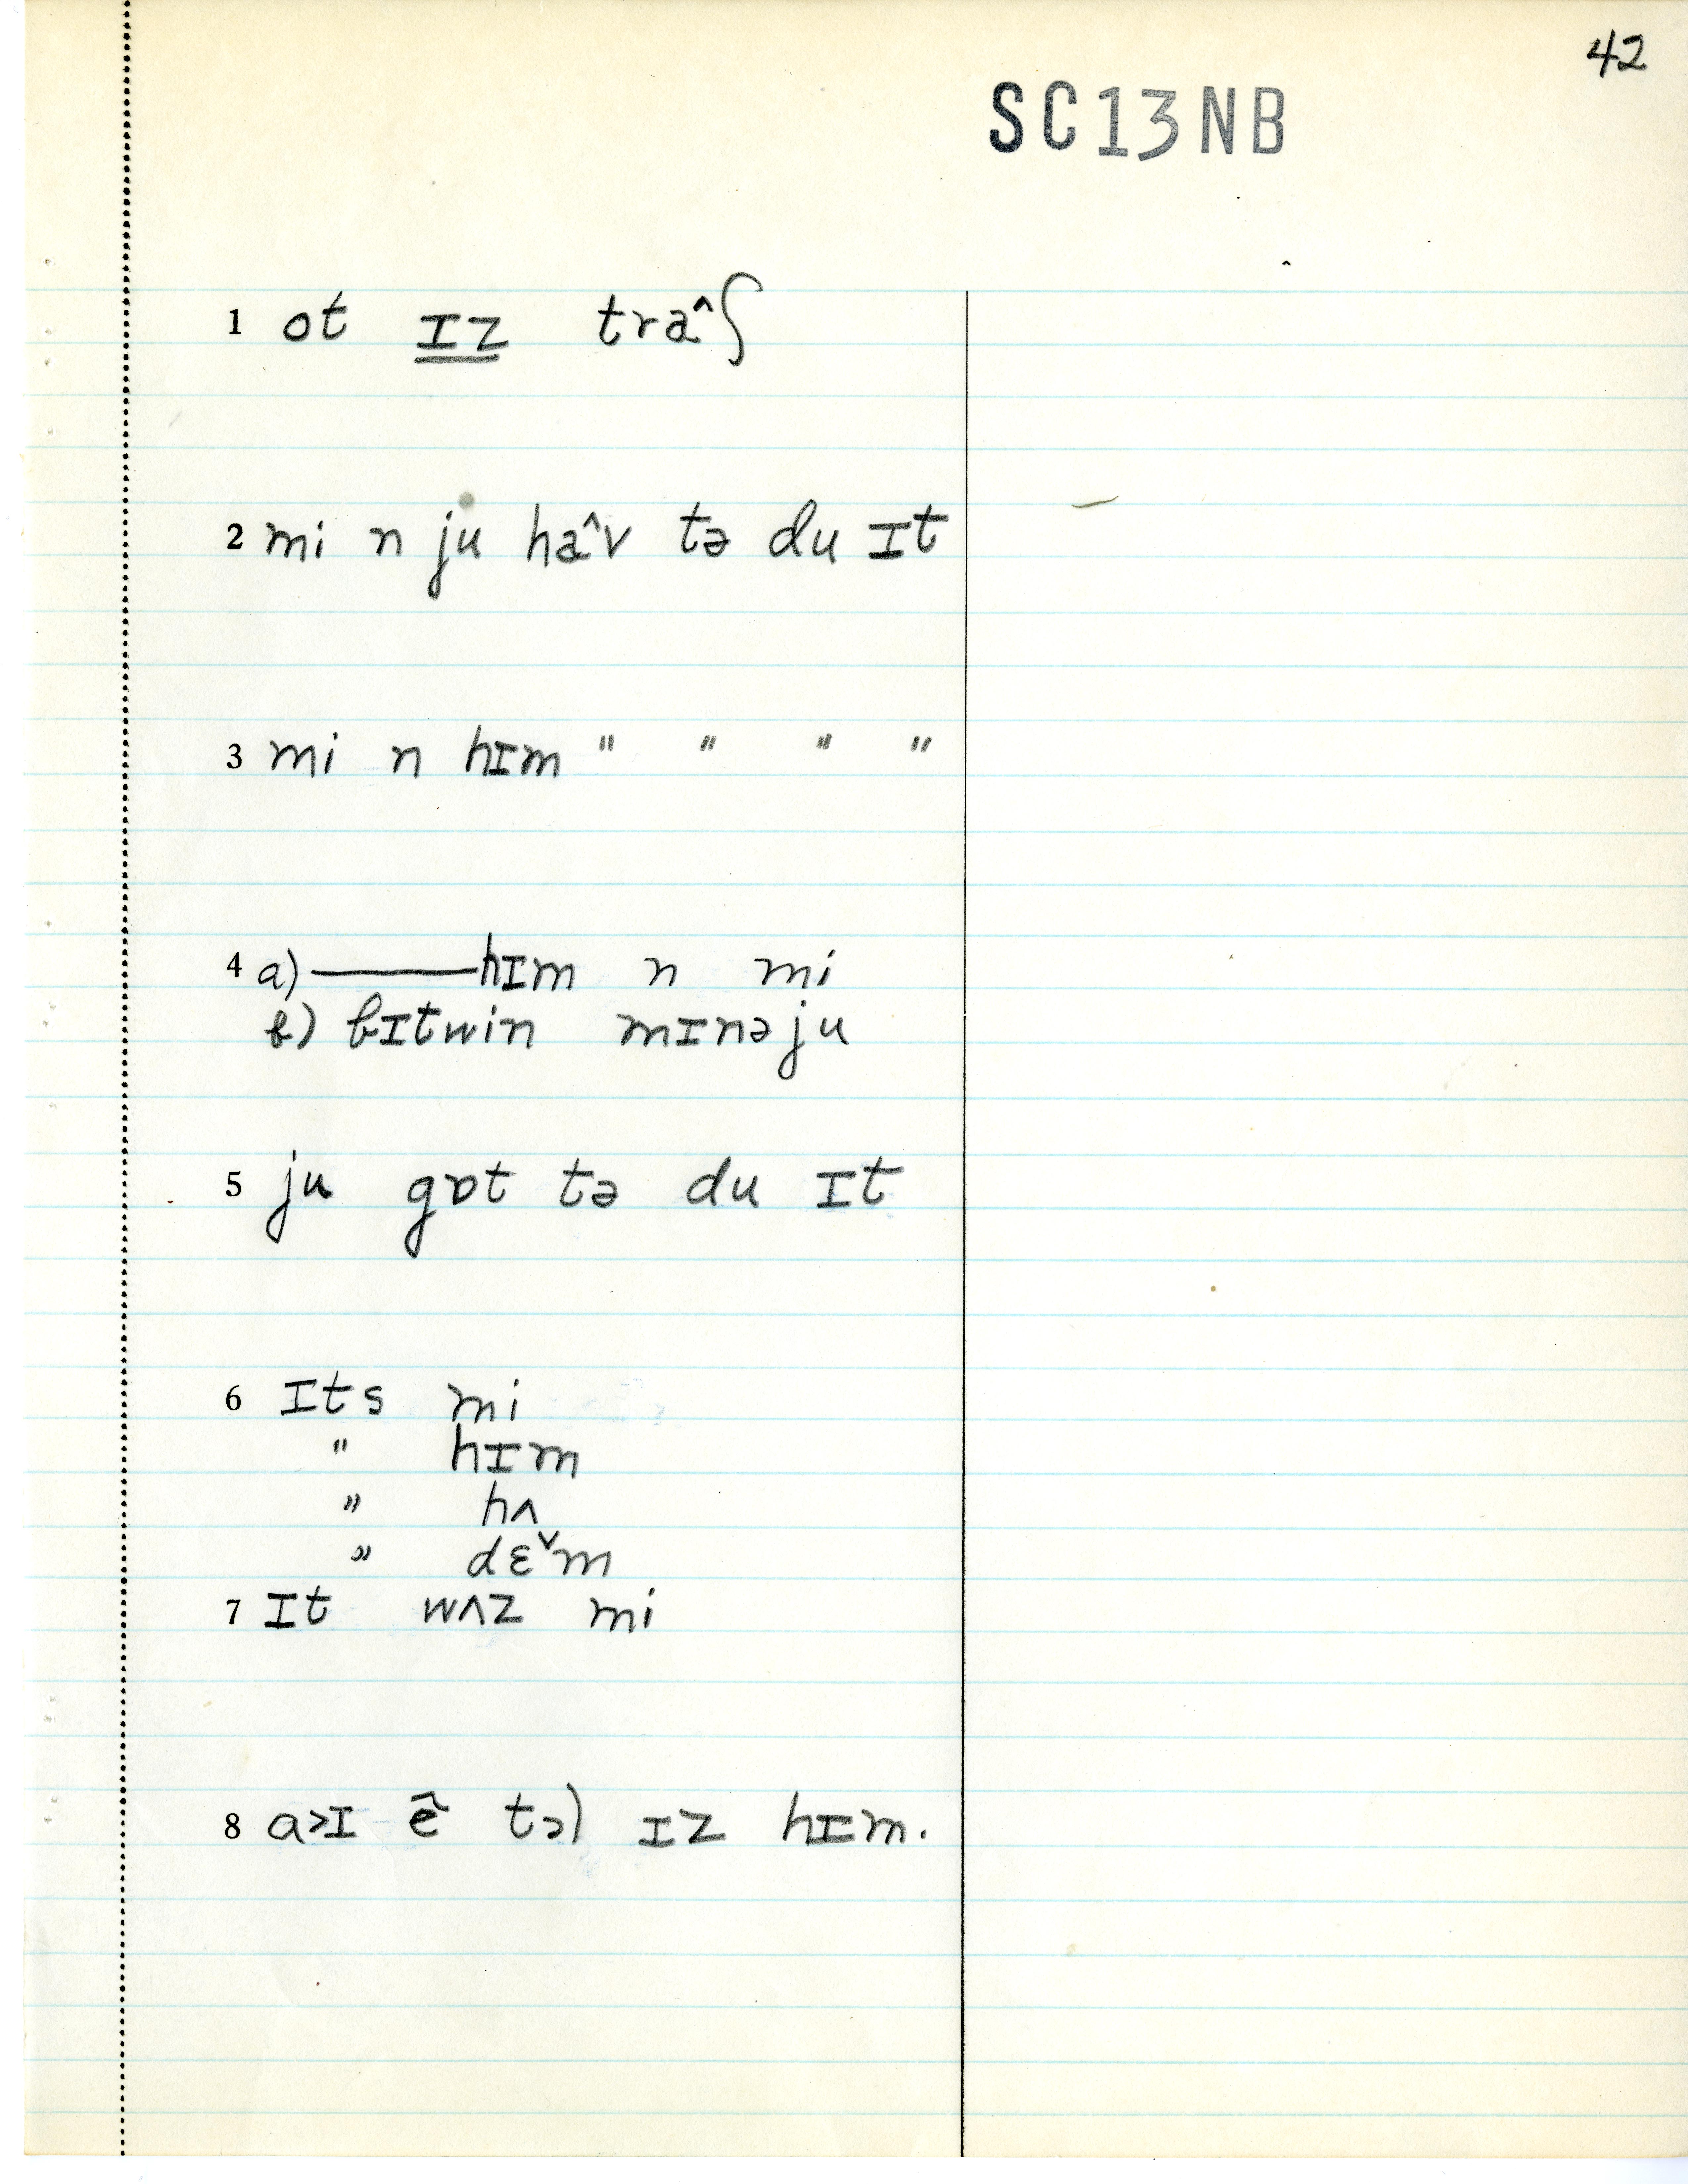 42
SC13NB
1 ot ɪz tra^ʃ
2 mi n ju ha^v tə du ɪt
3 mi n hɪm " " " "
4 a) ——— hɪm n mi
b) bɪtwin mɪnəju
5 ju gɒt tə du ɪt
6 ɪts mi
" hɪm
" hʌ
" dɛˇm
7 ɪt wʌz mi
8 a>ɪ ɪz hɪm.